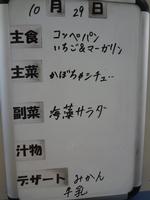 10月29日
主食 コッペパン
いちご&マーガリン
主菜 かぼちゃシチュー
副菜 海藻サラダ
汁物
デザート みかん
牛乳